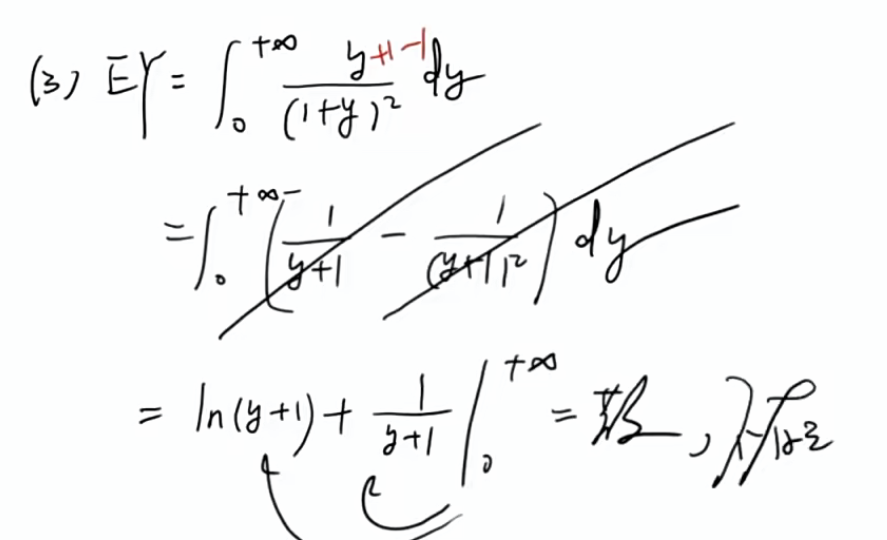 (3) EY = ∫₀^{+∞} \frac{y+1-1}{(1+y)²} dy
= ∫₀^{+∞} ( \frac{1}{y+1} - \frac{1}{(y+1)²} ) dy
= ln(y+1) + \frac{1}{y+1} |₀^{+∞} = 发散, 不存在